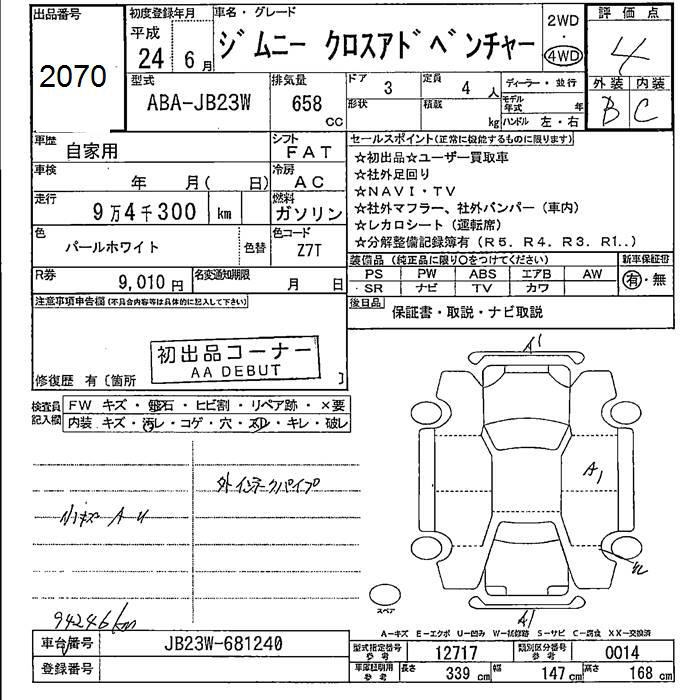 出品番号
2070
初度登録年月
平成
24 6月
車名・グレード
ジムニー クロスアドベンチャー
2WD
・
4WD
評価点
4
外装 内装
B C
型式
ABA-JB23W
排気量
658 CC
ドア 3
形状
定員 4 人
積載 kg
ディーラー・並行
モデル年式 年
ハンドル 左・右
車歴
自家用
シフト
FAT
車検
年 月( 日)
冷房
AC
走行
9万4千300 km
燃料
ガソリン
色
パールホワイト
色替
色コード
Z7T
R券
9,010円
名変通知期限
月 日
セールスポイント(正常に機能するものに限ります)
☆初出品☆ユーザー買取車
☆社外足回り
☆NAVI・TV
☆社外マフラー、社外バンパー(車内)
☆レカロシート(運転席)
☆分解整備記録簿有(R5.R4.R3.R1..)
装備品(純正品に限り○をつけてください)
新車保証書
PS PW ABS エアB AW
SR ナビ TV カワ
有・無
後日品
保証書・取説・ナビ取説
注意事項申告欄(不具合内容等は具体的に記入して下さい)
初出品コーナー
AA DEBUT
修復歴 有〔箇所 〕
検査員記入欄
FW キズ・飛石・ヒビ割・リペア跡・×要
内装 キズ・汚レ・コゲ・穴・スレ・キレ・破レ
外インテークパイプ
小キズ A U
94246km
A1
A1
A1
スペア
A-キズ E-エクボ U-凹み W-補修跡 S-サビ C-腐食 XX-交換済
車台番号
JB23W-681240
登録番号
型式指定番号
参考
12717
類別区分番号
参考
0014
車庫証明用
参考
長さ 339 cm 幅 147 cm 高さ 168 cm